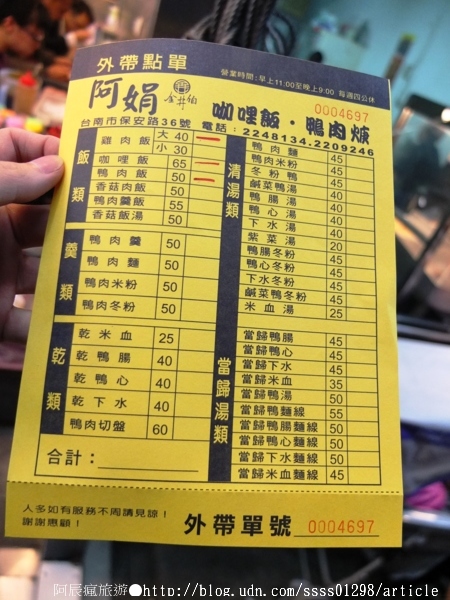 外帶點單
營業時間:早上11:00至晚上9:00 每週四公休
阿娟 金井伯 咖哩飯·鴨肉焿
0004697
台南市保安路36號 電話:2248134.2209246
飯類
雞肉飯 大 40
小 30
咖哩飯 65
鴨肉飯 50
香菇肉飯 50
鴨肉羹飯 55
香菇飯湯 50
羹類
鴨肉羹 50
鴨肉麵 50
鴨肉米粉 50
鴨肉冬粉 50
乾類
乾米血 25
乾鴨腸 40
乾鴨心 40
乾下水 40
鴨肉切盤 60
合計:
清湯類
鴨肉麵 45
鴨肉米粉 45
冬粉鴨 45
鹹菜鴨湯 40
鴨腸湯 40
鴨心湯 40
下水湯 40
紫菜湯 20
鴨腸冬粉 45
鴨心冬粉 45
下水冬粉 45
鹹菜鴨冬粉 45
米血湯 25
當歸湯類
當歸鴨腸 45
當歸鴨心 45
當歸下水 45
當歸米血 35
當歸鴨湯 50
當歸鴨麵線 55
當歸鴨腸麵線 50
當歸鴨心麵線 50
當歸下水麵線 50
當歸米血麵線 45
人多如有服務不周請見諒!
謝謝惠顧!
外帶單號 0004697
阿辰瘋旅遊●http://blog.udn.com/ssss01298/article